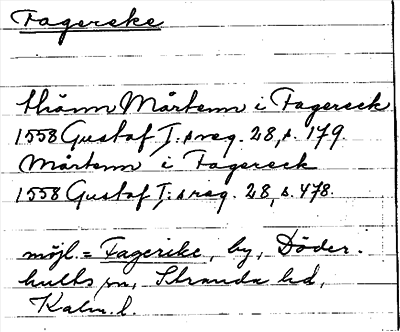 Fagereke
thönn Mårtenn i Fagereck
1558 Gustaf I:s reg. 28, s. 179.
Mårtenn i Fagereck
1558 Gustaf I:s reg. 28, s. 478.
möjl. = Fagereke, by, Döder-
hults sn, Stranda hd,
Kalm. l.